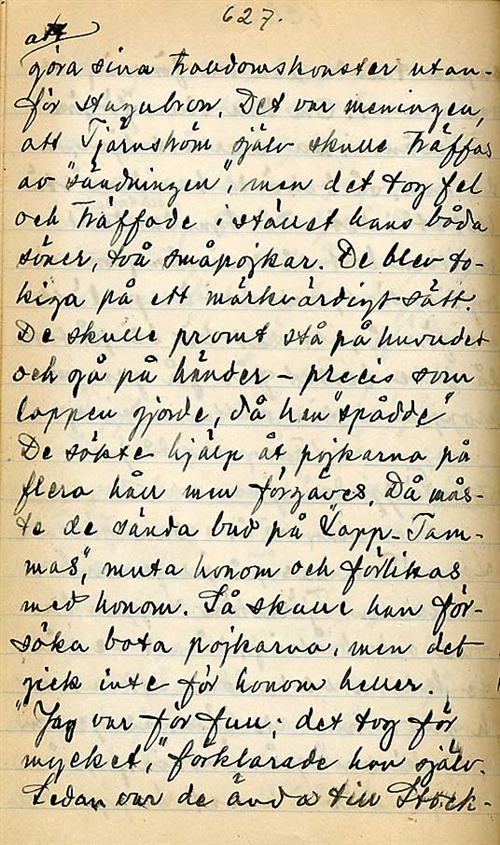 627.
att
göra sina trolldomskonster utan-
för stugubron. Det var meningen,
att Tjärnström själv skulle träffas
av "sändningen", men det tog fel
och träffade i stället hans båda
söner, två småpojkar. De blev to-
kiga på ett märkvärdigt sätt.
De skulle promt stå på huvudet
och gå på händer - precis som
lappen gjorde, då han "spådde"
De sökte hjälp åt pojkarna på
flera håll men förgäves. Då mås-
te de sända bud på "Lapp-Tam-
mas", muta honom och förlikas
med honom. Så skulle han för-
söka bota pojkarna, men det
gick inte för honom heller.
"Jag var för full; det tog för
mycket," förklarade han själv.
Sedan var de ända till Stock-